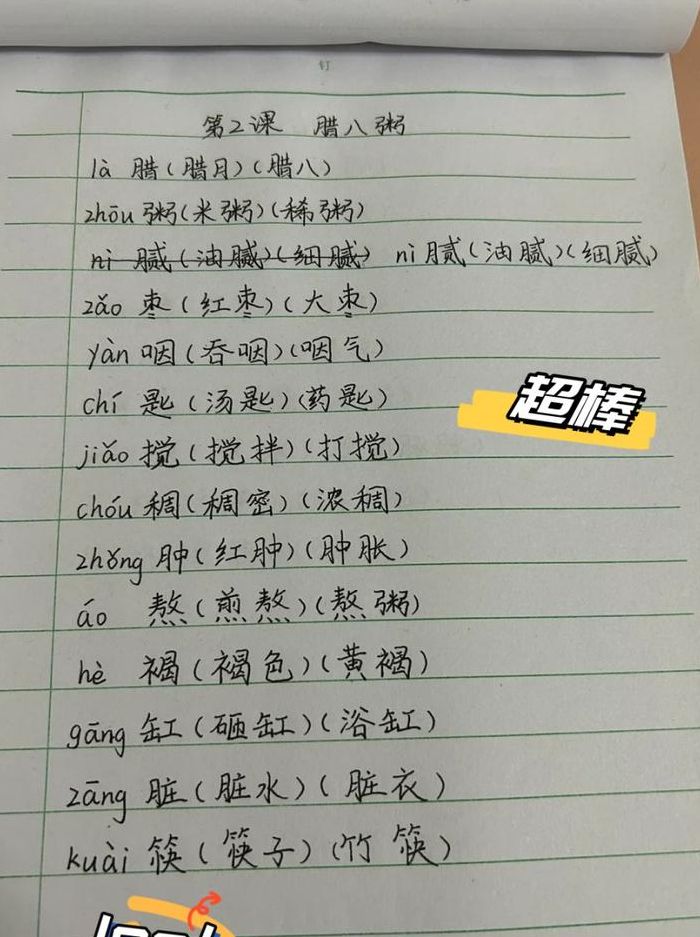 钉
第2课 腊八粥
là 腊(腊月)(腊八)
zhōu 粥(米粥)(稀粥)
nì 腻(油腻)(细腻) nì 腻(油腻)(细腻)
zǎo 枣(红枣)(大枣)
yàn 咽(吞咽)(咽气)
chí 匙(汤匙)(药匙)
超棒
jiǎo 搅(搅拌)(打搅)
chóu 稠(稠密)(浓稠)
zhǒng 肿(红肿)(肿胀)
áo 熬(煎熬)(熬粥)
hè 褐(褐色)(黄褐)
gāng 缸(砸缸)(浴缸)
zāng 脏(脏水)(脏衣)
kuài 筷(筷子)(竹筷)